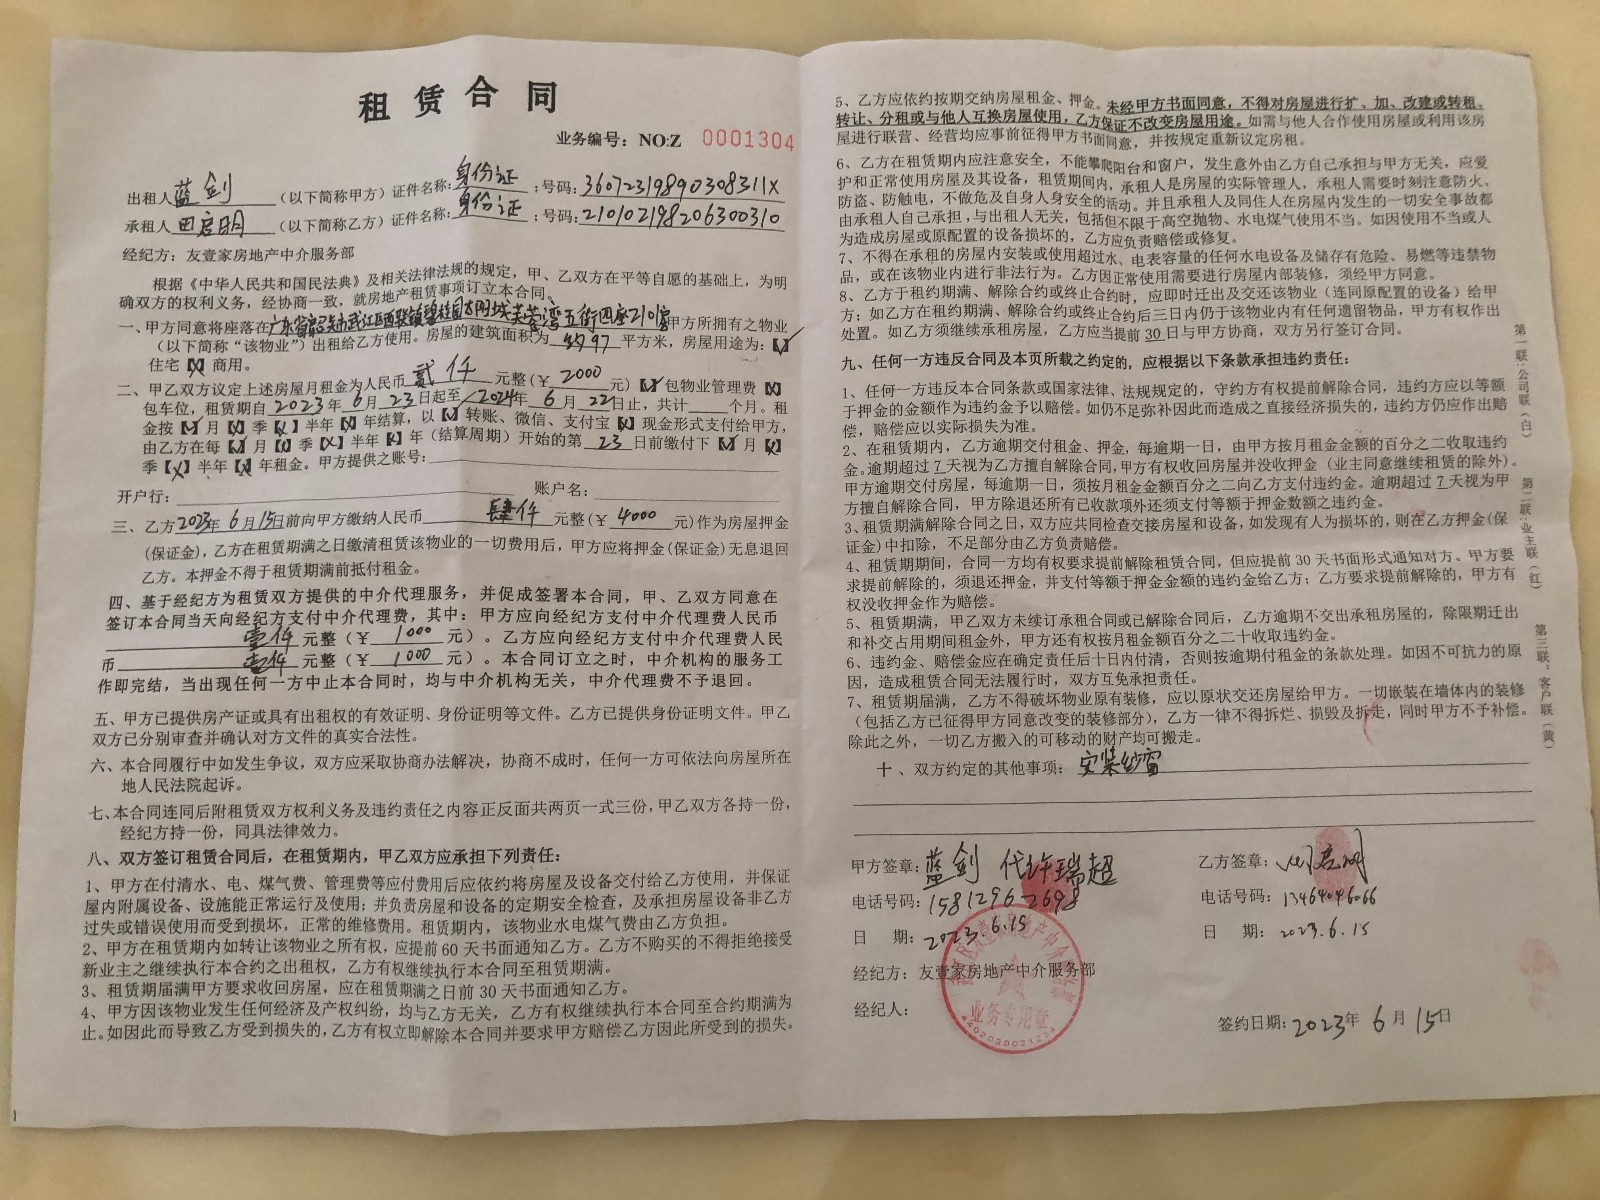 租赁合同
业务编号：NO:Z 0001304
出租人 蓝剑 （以下简称甲方）证件名称：身份证 ：号码：36072319890308311X
承租人 田启明 （以下简称乙方）证件名称：身份证 ：号码：210102198206300310
经纪方：友壹家房地产中介服务部
根据《中华人民共和国民法典》及相关法律法规的规定，甲、乙双方在平等自愿的基础上，为明
确双方的权利义务，经协商一致，就房地产租赁事项订立本合同。
一、甲方同意将座落在广东省韶关市武江区西联镇碧桂园太阳城芙蓉湾五街四座2101室甲方所拥有之物业
（以下简称“该物业”）出租给乙方使用。房屋的建筑面积为 97 平方米，房屋用途为：【✓】
住宅【X】商用。
二、甲乙双方议定上述房屋月租金为人民币 贰仟 元整（￥ 2000 元）【✓】包物业管理费【X】
包车位，租赁期自2023年6月23日起至2024年6月22日止，共计 个月。租
金按【✓】月【X】季【X】半年【X】年结算，以【✓】转账、微信、支付宝【X】现金形式支付给甲方，
由乙方在每【✓】月【X】季【X】半年【X】年（结算周期）开始的第 23 日前缴付下【✓】月【X】
季【X】半年【X】年租金。甲方提供之账号：
开户行： 账户名：
三、乙方2023年6月15日前向甲方缴纳人民币 肆仟 元整（￥ 4000 元)作为房屋押金
(保证金)，乙方在租赁期满之日缴清租赁该物业的一切费用后，甲方应将押金(保证金)无息退回
乙方。本押金不得于租赁期满前抵付租金。
四、基于经纪方为租赁双方提供的中介代理服务，并促成签署本合同，甲、乙双方同意在
签订本合同当天向经纪方支付中介代理费，其中：甲方应向经纪方支付中介代理费人民币
壹仟 元整（￥ 1000 元）。乙方应向经纪方支付中介代理费人民
币 壹仟 元整（￥ 1000 元）。本合同订立之时，中介机构的服务工
作即完结，当出现任何一方中止本合同时，均与中介机构无关，中介代理费不予退回。
五、甲方已提供房产证或具有出租权的有效证明、身份证明等文件。乙方已提供身份证明文件。甲乙
双方已分别审查并确认对方文件的真实合法性。
六、本合同履行中如发生争议，双方应采取协商办法解决，协商不成时，任何一方可依法向房屋所在
地人民法院起诉。
七、本合同连同后附租赁双方权利义务及违约责任之内容正反面共两页一式三份，甲乙双方各持一份，
经纪方持一份，同具法律效力。
八、双方签订租赁合同后，在租赁期内，甲乙双方应承担下列责任：
1、甲方在付清水、电、煤气费、管理费等应付费用后应依约将房屋及设备交付给乙方使用，并保证
屋内附属设备、设施能正常运行及使用；并负责房屋和设备的定期安全检查，及承担房屋设备非乙方
过失或错误使用而受到损坏，正常的维修费用。租赁期内，该物业水电煤气费由乙方负担。
2、甲方在租赁期内如转让该物业之所有权，应提前60天书面通知乙方。乙方不购买的不得拒绝接受
新业主之继续执行本合约之出租权，乙方有权继续执行本合同至租赁期满。
3、租赁期届满甲方要求收回房屋，应在租赁期满之日前30天书面通知乙方。
4、甲方因该物业发生任何经济及产权纠纷，均与乙方无关，乙方有权继续执行本合同至合约期满为
止。如因此而导致乙方受到损失的，乙方有权立即解除本合同并要求甲方赔偿乙方因此所受到的损失。
5、乙方应依约按期交纳房屋租金、押金。未经甲方书面同意，不得对房屋进行扩、加、改建或转租、
转让、分租或与他人互换房屋使用，乙方保证不改变房屋用途。如需与他人合作使用房屋或利用该房
屋进行联营、经营均应事前征得甲方书面同意，并按规定重新议定房租。
6、乙方在租赁期内应注意安全，不能攀爬阳台和窗户，发生意外由乙方自己承担与甲方无关，应爱
护和正常使用房屋及其设备，租赁期间内，承租人是房屋的实际管理人，承租人需要时刻注意防火、
防盗、防触电，不做危及自身人身安全的活动。并且承租人及同住人在房屋内发生的一切安全事故都
由承租人自己承担，与出租人无关，包括但不限于高空抛物、水电煤气使用不当。如因使用不当或人
为造成房屋或原配置的设备损坏的，乙方应负责赔偿或修复。
7、不得在承租的房屋内安装或使用超过水、电表容量的任何水电设备及储存有危险、易燃等违禁物
品，或在该物业内进行非法行为。乙方因正常使用需要进行房屋内部装修，须经甲方同意。
8、乙方于租约期满、解除合约或终止合约时，应即时迁出及交还该物业（连同原配置的设备）给甲
方；如乙方在租约期满、解除合约或终止合约后三日内仍于该物业内有任何遗留物品，甲方有权作出
处置。如乙方须继续承租房屋，乙方应当提前30日与甲方协商，双方另行签订合同。
九、任何一方违反合同及本页所载之约定的，应根据以下条款承担违约责任：
1、任何一方违反本合同条款或国家法律、法规规定的，守约方有权提前解除合同，违约方应以等额
于押金的金额作为违约金予以赔偿。如仍不足弥补因此而造成之直接经济损失的，违约方仍应作出赔
偿，赔偿应以实际损失为准。
2、在租赁期内，乙方逾期交付租金、押金，每逾期一日，由甲方按月租金金额的百分之二收取违约
金。逾期超过7天视为乙方擅自解除合同，甲方有权收回房屋并没收押金（业主同意继续租赁的除外）。
甲方逾期交付房屋，每逾期一日，须按月租金金额百分之二向乙方支付违约金。逾期超过7天视为甲
方擅自解除合同，甲方除退还所有已收款项外还须支付等额于押金数额之违约金。
3、租赁期满解除合同之日，双方应共同检查交接房屋和设备，如发现有人为损坏的，则在乙方押金(保
证金)中扣除，不足部分由乙方负责赔偿。
4、租赁期期间，合同一方均有权要求提前解除租赁合同，但应提前30天书面形式通知对方。甲方要
求提前解除的，须退还押金，并支付等额于押金金额的违约金给乙方；乙方要求提前解除的，甲方有
权没收押金作为赔偿。
5、租赁期满，甲乙双方未续订承租合同或已解除合同后，乙方逾期不交出承租房屋的，除限期迁出
和补交占用期间租金外，甲方还有权按月租金额百分之二十收取违约金。
6、违约金、赔偿金应在确定责任后十日内付清，否则按逾期付租金的条款处理。如因不可抗力的原
因，造成租赁合同无法履行时，双方互免承担责任。
7、租赁期届满，乙方不得破坏物业原有装修，应以原状交还房屋给甲方。一切嵌装在墙体内的装修
（包括乙方已征得甲方同意改变的装修部分），乙方一律不得拆烂、损毁及拆走，同时甲方不予补偿。
除此之外，一切乙方搬入的可移动的财产均可搬走。
十、双方约定的其他事项：安装纱窗
甲方签章：蓝剑 代许瑞超 乙方签章：田启明
电话号码：15812962698 电话号码：13464046066
日 期：2023.6.15 日 期：2023.6.15
经纪方：友壹家房地产中介服务部
经纪人：
签约日期：2023年6月15日
业务专用章
第一联：公司联（白） 第二联：业主联（红） 第三联：客户联（黄）